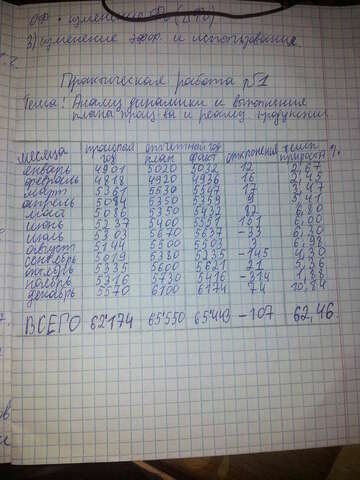 3) изменение эфф. и использование
Практическая работа №1
Тема: Анализ динамики и выполнение
плана произ-ва и реализ. продукции
месяца прошлый год отчетный год план факт отклонения темп прироста %
январь 4901 5020 5032 12
февраль 4818 4920 4936 16
март 5361 5530 5547 17 3,47
апрель 5084 5350 5359 9 5,41
май 5086 5350 5432 82 6,80
июнь 5237 5400 5561 161
июль 5303 5670 5637 -33 6,30
август 5144 5500 5503 3 6,98
сентябрь 5019 5380 5235 -145 4,30
октябрь 5335 5600 5621 21 5,36
ноябрь 5316 5730 5416 -314 1,88
декабрь 5570 6100 6174 74 10,84
ВСЕГО 62174 65550 65443 -107 62,46